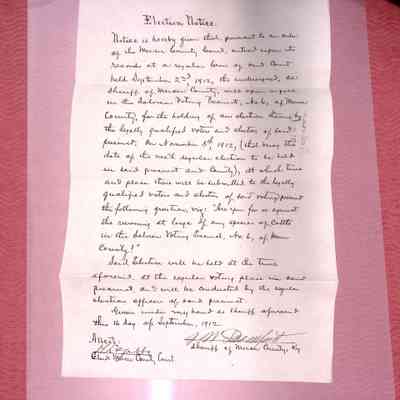 Election Notice.
Notice is hereby given that pursuant to an order
of the Mercer County Court, entered upon its
records at a regular term of said Court
held September 2nd, 1912, the undersigned, as
Sheriff of Mercer County, will open a poll
in the Salvisa Voting Precinct, No. 6, of Mercer
County, for the holding of an election therein by
the legally qualified voters and electors of said
precinct, on November 5th, 1912, (that being the
date of the next regular election to be held
in said precinct and County), at which time
and place there will be submitted to the legally
qualified voters and electors of said voting precinct
the following question, viz: "Are you for or against
the running at large of any species of Cattle
in the Salvisa Voting Precinct, No. 6, of Mercer
County?"
Said Election will be held at the time
aforesaid, at the regular voting place in said
precinct, and will be conducted by the regular
election officers of said precinct.
Given under my hand as Sheriff aforesaid
this 16 day of September, 1912.
Attest:
Sheriff of Mercer County, Ky
Clerk Mercer County Court